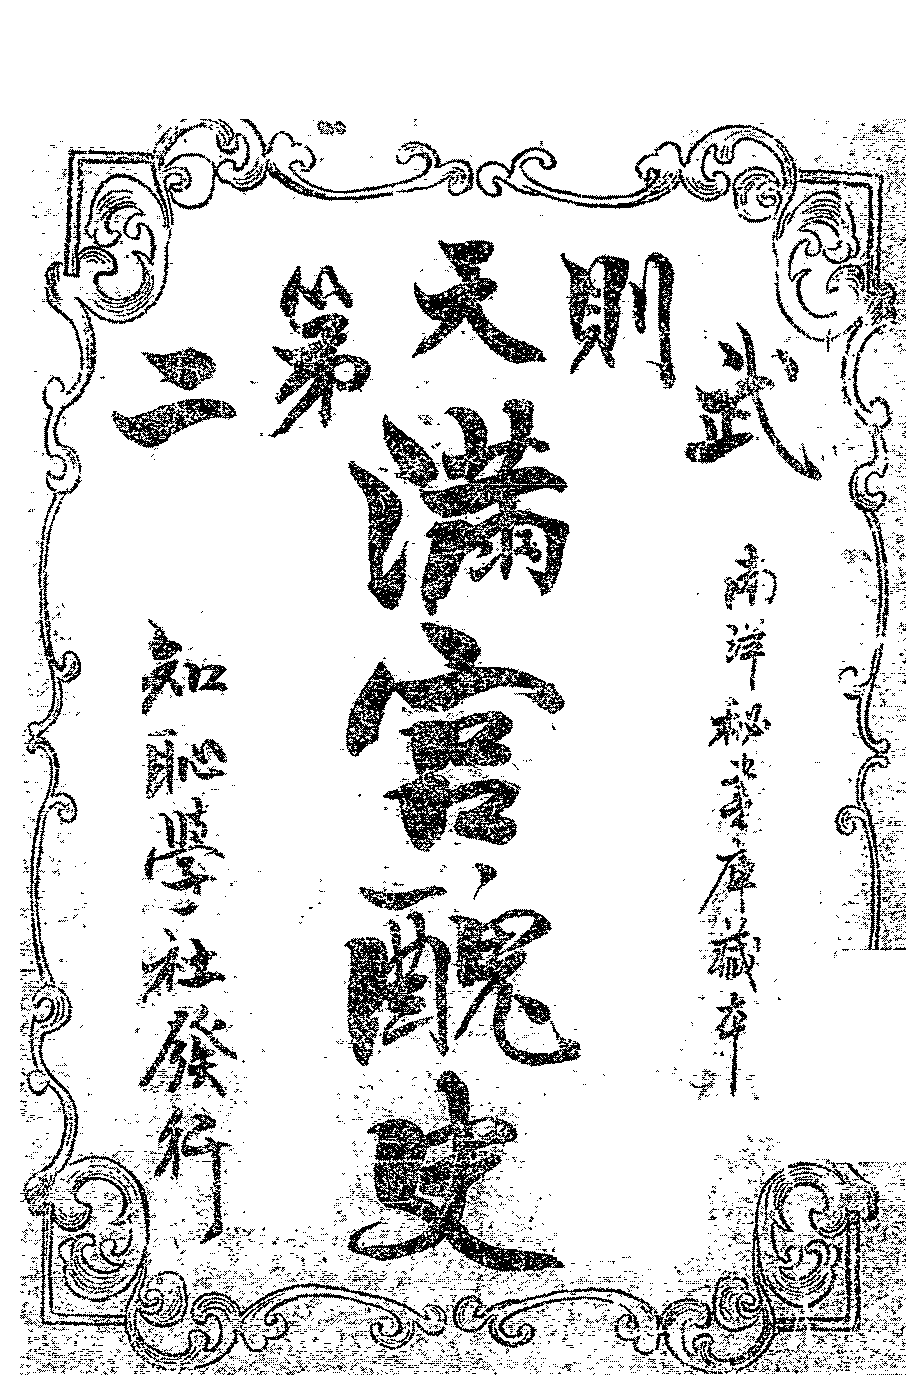 武則天第二
南洋秘密庫藏本
滿宮醜史
知恥學社發行